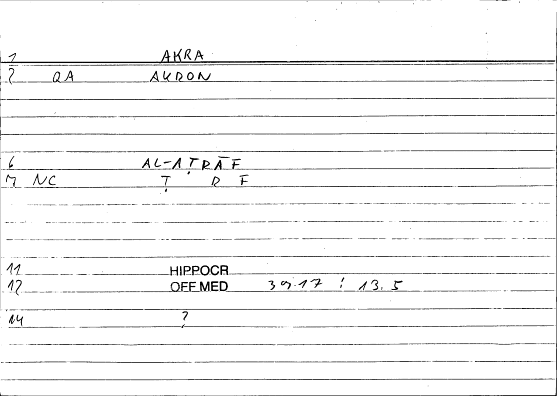 1 AKRA
2 QA AKRON
6 AL-AṬRĀF
7 NC Ṭ R F
11 HIPPOCR
12 OFF MED 39.17 : 13.5
14 ?